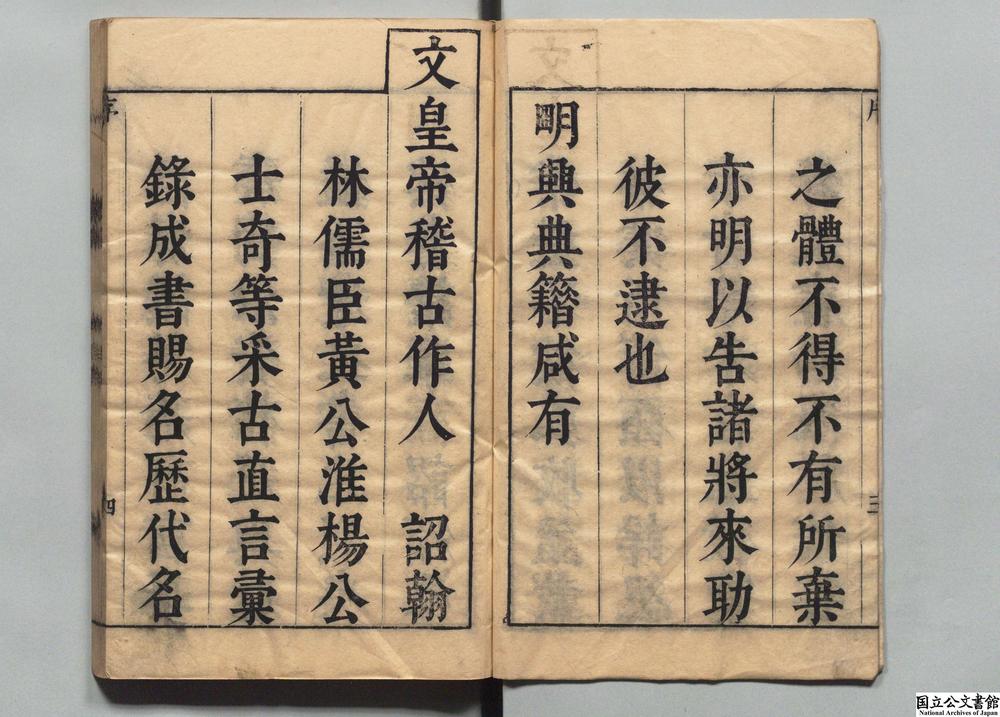 之體不得不有所棄
亦明以告諸將來助
彼不逮也
明興典籍咸有
文皇帝稽古作人 詔翰
林儒臣黃公淮楊公
士奇等采古直言彙
錄成書賜名歷代名
三
序
四
国立公文書館
National Archives of Japan